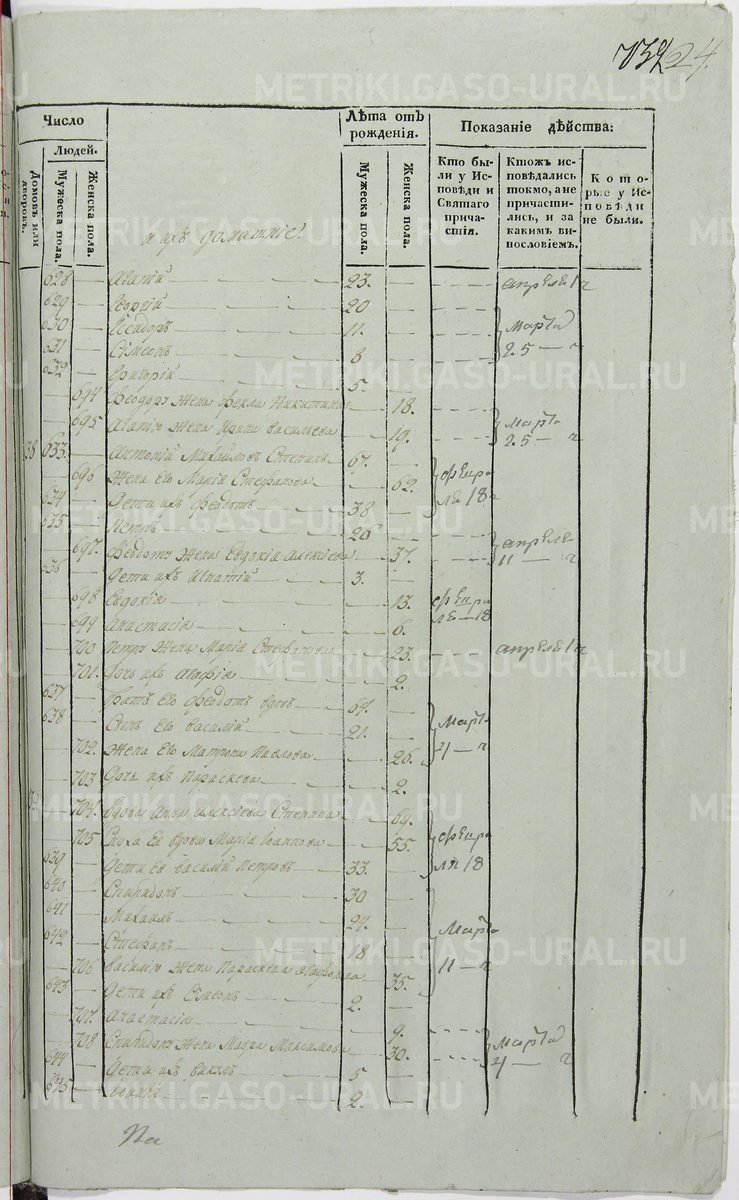 732 24.
Число
Лѣта отъ рожденія.
Показаніе дѣйства:
Людей.
Домовъ или дворовъ.
Мужеска пола.
Женска пола.
Мужеска пола.
Женска пола.
Кто были у Исповѣди и Святаго причастія.
Ктожъ исповѣдались токмо, а не причастились, и за какимъ винословіемъ.
Которые у Исповѣди не были.
и ихъ домашніе!
628 — 23. — апреля 1 ч
629 — 20
630 — Исидоръ — 11. — Марта
631 — Сімеонъ — 8 — 25 — ч
632 — Григорій — 5.
— 694 Феодоръ Жена Фекла Никитина — 18.
— 695 Жена Ирина Васильева — 19. Марта 25 — ч
38 633 — Антоній Михайловъ 67. —
— 696 Жена Его Марія Стефанова — 62. февра
634 — Дети ихъ Феодотъ — 38 — ля 18 ч
635 — Петръ — 26 —
— 697. Феодотъ Жена Евдокія Алексіева — 37. апреля
636 — Дети ихъ Игнатій — 3. — 11 — ч
— 698 Евдокія — 13. февра
— 699 Анастасія — 6. ля — 18
— 700 Петръ Жена Марія Стефанова — 23. апреля 1 ч
— 701. Дочь ихъ — 2.
637 — Братъ Его Феодотъ вдовъ — 64. —
638 — Сынъ Его Василій — 21. — Марта
— 702. Жена Его Матрона Павлова — 26. 4 — ч
— 703 Дочь ихъ Параскева — 2.
— 704. вдова Анна Алексіева — 69.
— 705 Сноха Ея вдова Марія Іоаннова — 55. февра
639 — Дети Ея Василій Петровъ — 33. — ля 18
640 — Спиридонъ — 30
641 — Михаилъ — 24. — Марта
642 — Стефанъ — 18 —
— 706 Василію Жена Параскева — 35. 11 — ч
643 — Дети ихъ Сімеонъ — 2. —
— 707. Анастасія — 9.
— 708 Спиридонъ Жена Мавра Максимова — 30. Марта
644 — Дети ихъ — 5 — 4 — ч
645 — 2. —
На